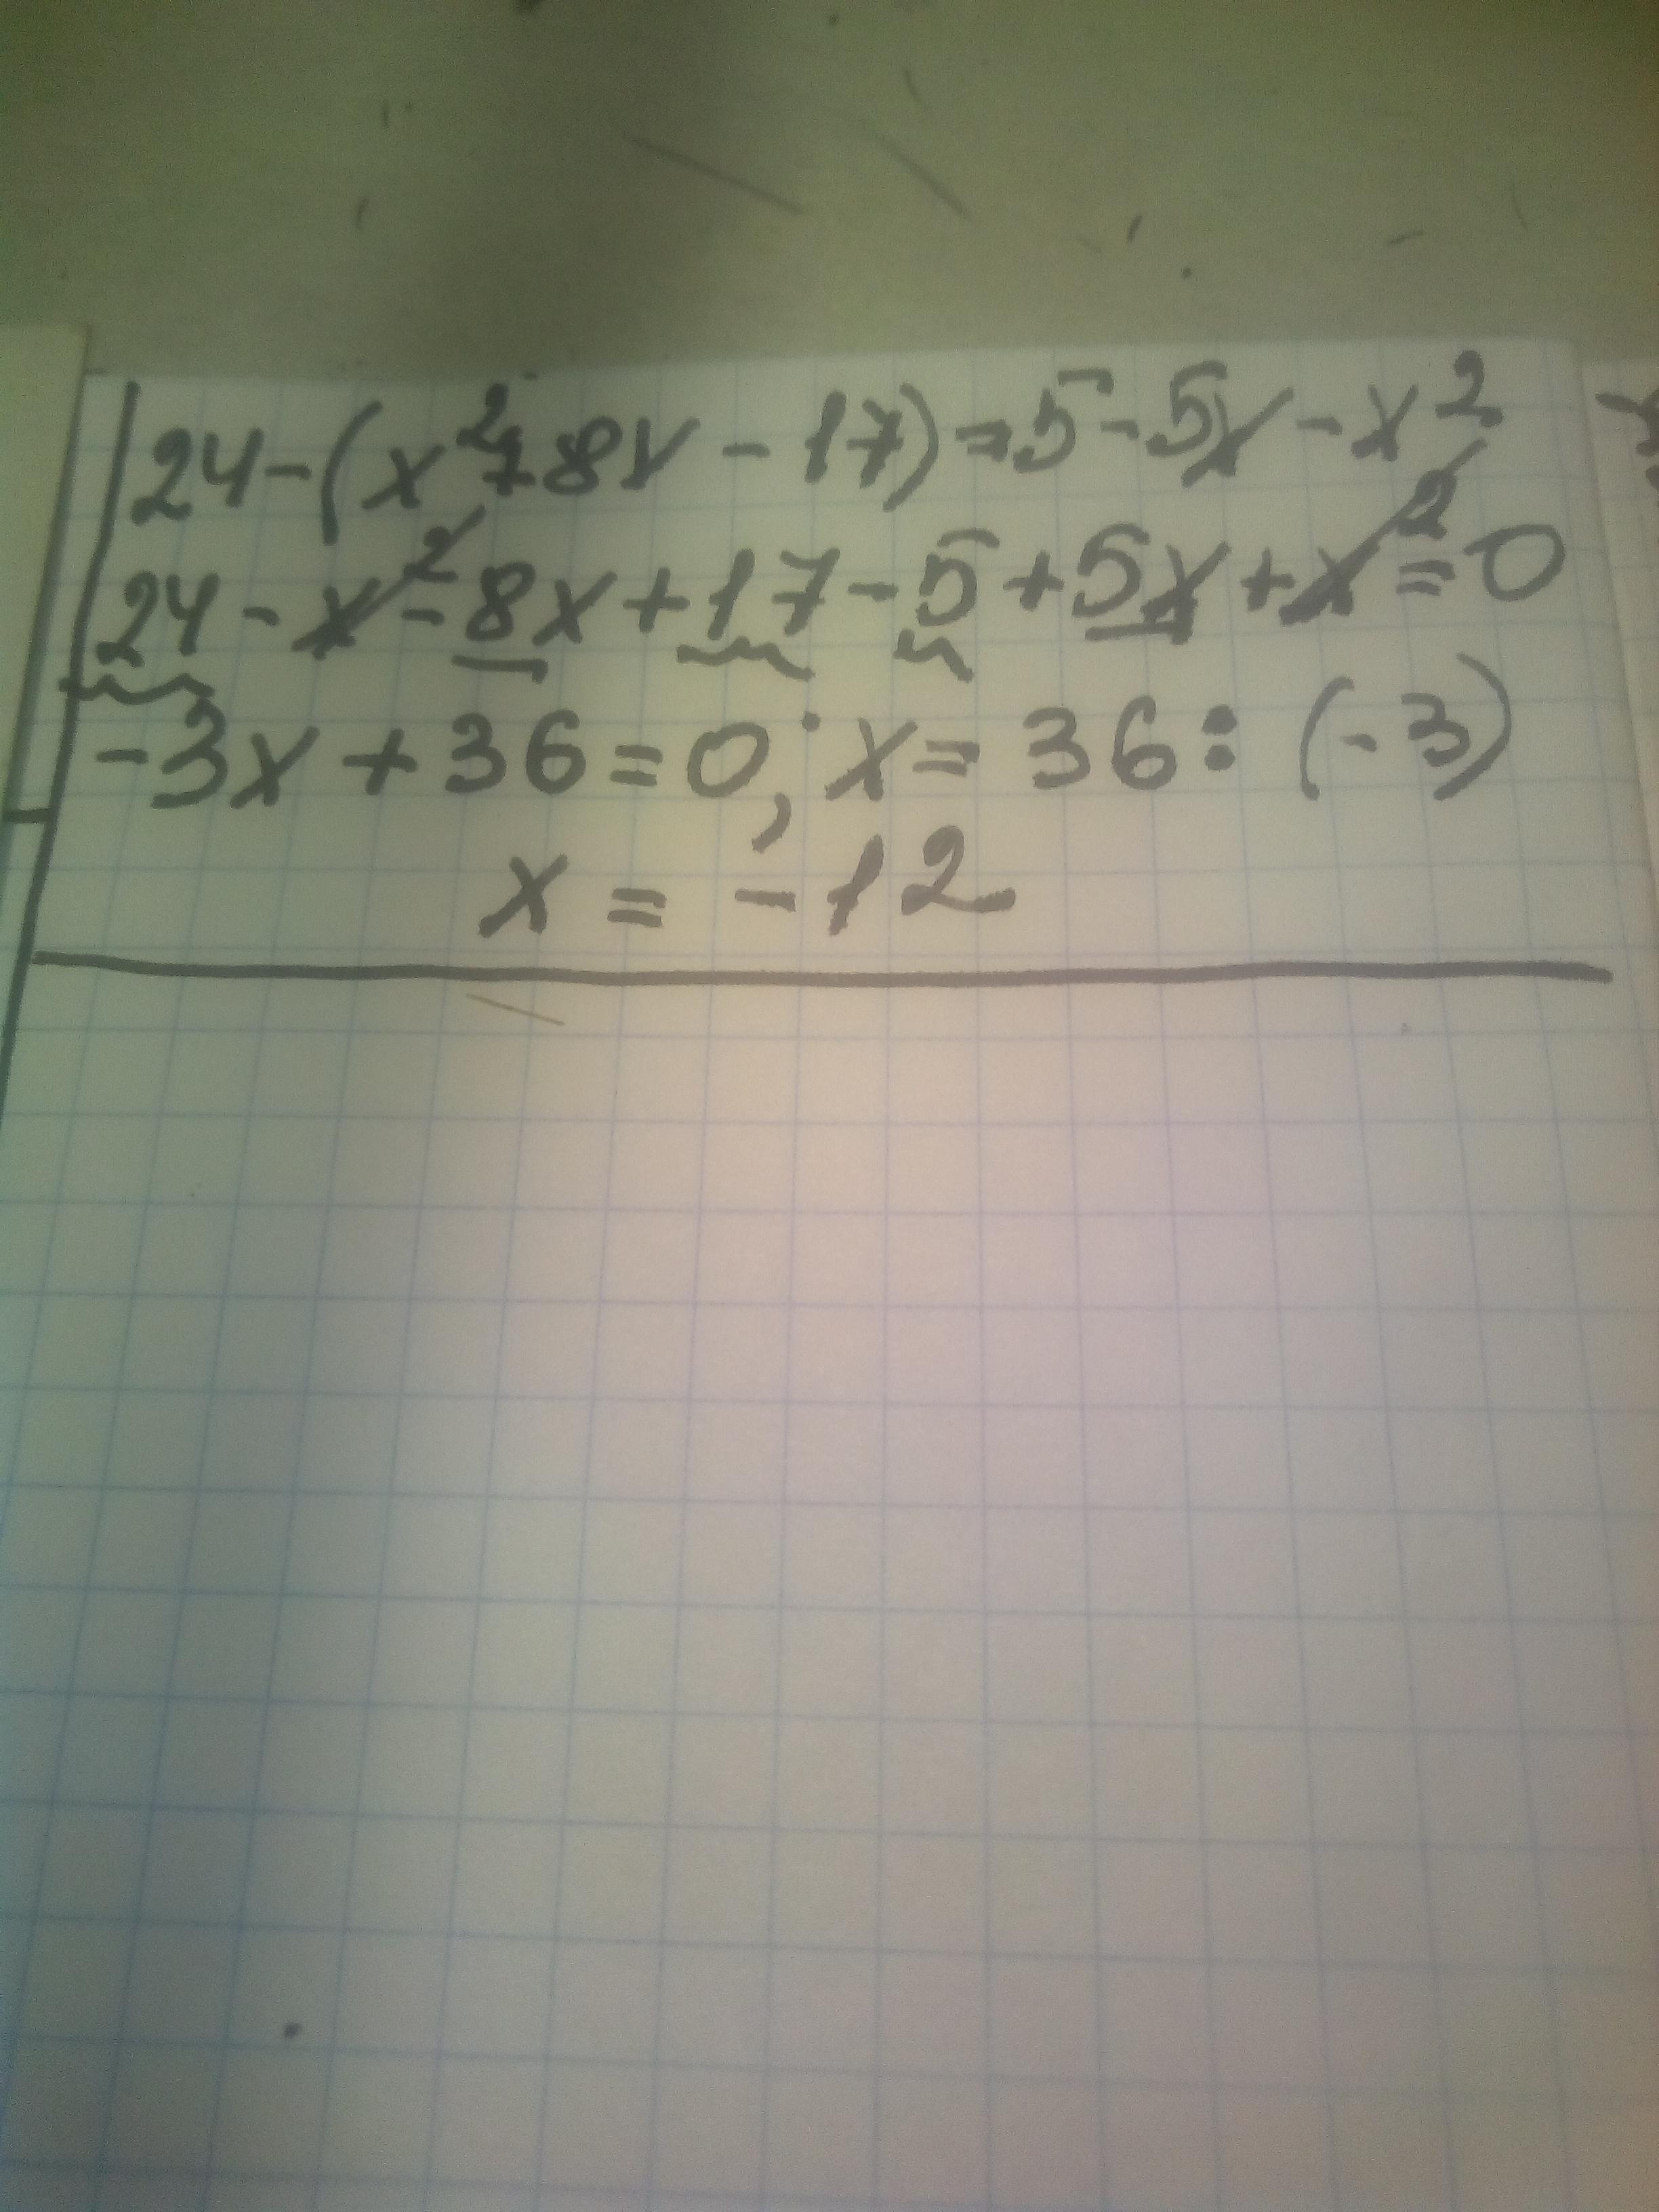 24-(x²+8x-17)=5-5x-x²
24-x²-8x+17-5+5x+x²=0
-3x+36=0; x=36:(-3)
x=-12